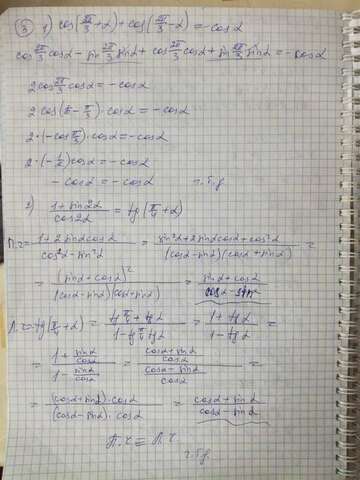 ③ 1) cos(2π/3 + α) + cos(2π/3 - α) = -cosα
cos 2π/3 cosα - sin 2π/3 sinα + cos 2π/3 cosα + sin 2π/3 sinα = -cosα
2cos 2π/3 cosα = -cosα
2cos(π - π/3) · cosα = -cosα
2·(-cos π/3)·cosα = -cosα
2·(-1/2)cosα = -cosα
-cosα = -cosα ч.т.д
2) (1+sin2α)/(cos2α) = tg(π/4 + α)
П.ч = (1+2sinαcosα)/(cos²α-sin²α) = (sin²α+2sinαcosα+cos²α)/((cosα-sinα)(cosα+sinα)) =
= (sinα+cosα)²/((cosα-sinα)(cosα+sinα)) = (sinα+cosα)/(cosα-sinα)
Л.ч = tg(π/4+α) = (tg π/4 + tgα)/(1 - tg π/4 tgα) = (1+tgα)/(1-tgα) =
= (1 + sinα/cosα)/(1 - sinα/cosα) = ((cosα+sinα)/cosα)/((cosα-sinα)/cosα) =
= ((cosα+sinα)·cosα)/((cosα-sinα)·cosα) = (cosα+sinα)/(cosα-sinα)
П.ч = Л.ч
ч.т.д